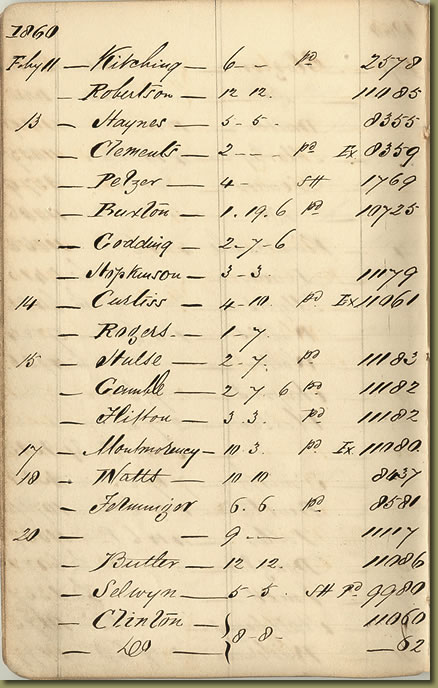 1860
Feby 11 — Kitching — 6 - - pd 2578
— Robertson — 12 12. 11085
13 — Haynes — 5 - 5 - 8355
— Clements — 2 - - - pd Ex 8359
— Petzer — 4 - SH 1769
— Buxton — 1. 19. 6 pd 10725
— Godding — 2 - 7 - 6
— Hopkinson — 3 - 3. 11179
14 — Curtiss — 4 - 10. pd Ex 11061
— Rogers — 1 - 7.
15 — Hulse — 2 - 7. pd 11183
— Gamble — 2 7 6 pd 11182
— Flitton — 3 3. pd 11182
17 — Montmorency — 10. 3. pd Ex 11080
18 — Watts — 10 10
— 6. 6 pd 8581
20 — — 9 — 11117
— Butler — 12 12. 11086
— Selwyn — 5 - 5. SH Pd 9980
— Clinton — 11060
— Do — 8 - 8 - — 62